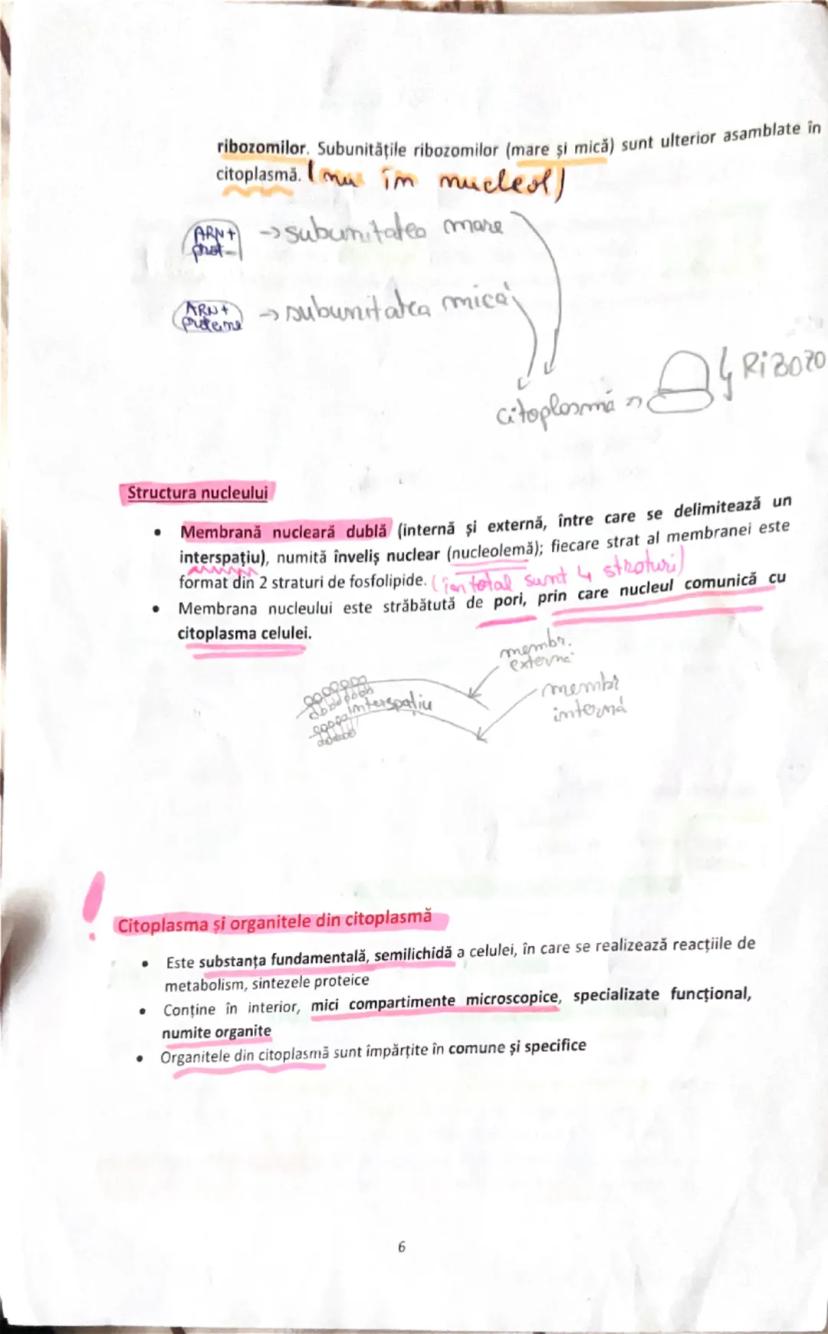 ribozomilor. Subunitățile ribozomilor (mare și mică) sunt ulterior asamblate în
citoplasmă. (nu în nucleol)
ARN+
prot
→ subunitatea mare
ARN+
proteine
→ subunitatea mică
citoplasmă
RIBOZO
Structura nucleului
• Membrană nucleară dublă (internă și externă, între care se delimitează un
interspațiu), numită înveliș nuclear (nucleolemă); fiecare strat al membranei este
format din 2 straturi de fosfolipide. (în total sunt 4 straturi)
• Membrana nucleului este străbătută de pori, prin care nucleul comunică cu
citoplasma celulei.
membr.
externă
interspațiu
membr
internă
!
Citoplasma și organitele din citoplasmă
• Este substanța fundamentală, semilichidă a celulei, în care se realizează reacțiile de
metabolism, sintezele proteice
• Conține în interior, mici compartimente microscopice, specializate funcțional,
numite organite
• Organitele din citoplasmă sunt împărțite în comune și specifice
6